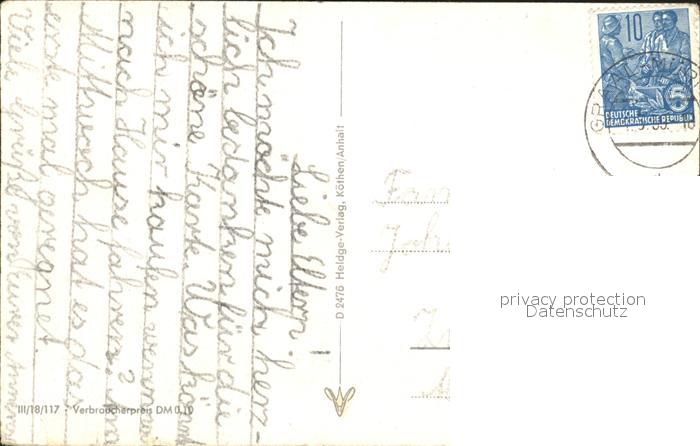 Liebe Eltern!
Ich möchte mich herz-
lich bedanken für die
schöne Karte. Was könnt
ich mir kaufen wenn
nach Hause fahren? Am
Mittwoch hat es das
erste mal geregnet.
Viele Grüße von eurer
D 2476 Heldge-Verlag, Köthen/Anhalt
III/18/117 · Verbraucherpreis DM 0,10
10
5
DEUTSCHE
DEMOKRATISCHE REPUBLIK
Fam
privacy protection
Datenschutz